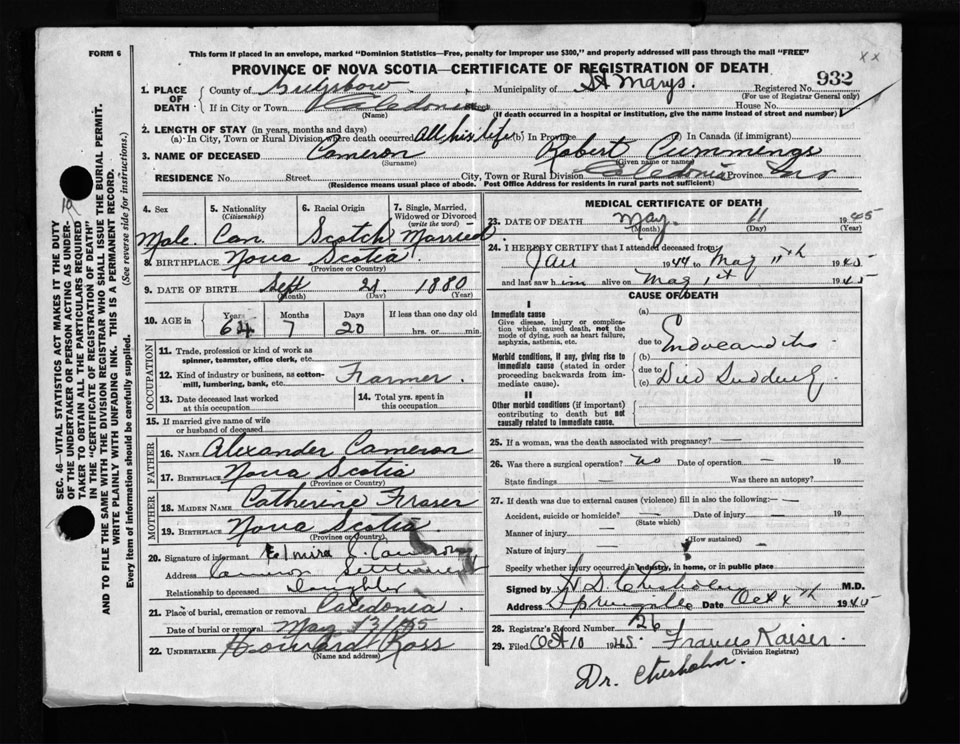 FORM 6
This form if placed in an envelope, marked "Dominion Statistics—Free, penalty for improper use $300," and properly addressed will pass through the mail "FREE"
PROVINCE OF NOVA SCOTIA—CERTIFICATE OF REGISTRATION OF DEATH
x x
932
SEC. 46—VITAL STATISTICS ACT MAKES IT THE DUTY
OF THE UNDERTAKER OR PERSON ACTING AS UNDER-
TAKER TO OBTAIN ALL THE PARTICULARS REQUIRED
IN THE "CERTIFICATE OF REGISTRATION OF DEATH"
AND TO FILE THE SAME WITH THE DIVISION REGISTRAR WHO SHALL ISSUE THE BURIAL PERMIT.
WRITE PLAINLY WITH UNFADING INK. THIS IS A PERMANENT RECORD.
Every item of information should be carefully supplied. (See reverse side for instructions.)
19
1. PLACE OF DEATH County of Guysboro Municipality of St Marys. Registered No.
(For use of Registrar General only)
If in City or Town Caledonia Street House No.
(Name) (If death occurred in a hospital or institution, give the name instead of street and number)
2. LENGTH OF STAY (in years, months and days)
(a) In City, Town or Rural Division where death occurred All his life (b) In Province (c) In Canada (if immigrant)
3. NAME OF DECEASED Cameron Robert Cummings
(Surname) (Given name or names)
RESIDENCE No. Street City, Town or Rural Division Caledonia Province N S
(Residence means usual place of abode. Post Office Address for residents in rural parts not sufficient)
4. Sex 5. Nationality (Citizenship) 6. Racial Origin 7. Single, Married, Widowed or Divorced (write the word)
Male. Can. Scotch Married
8. BIRTHPLACE Nova Scotia
(Province or Country)
9. DATE OF BIRTH Sept 21 1880
(Month) (Day) (Year)
10. AGE in Years Months Days If less than one day old
64 7 20 hrs. or min.
OCCUPATION
11. Trade, profession or kind of work as spinner, teamster, office clerk, etc.
12. Kind of industry or business, as cotton-mill, lumbering, bank, etc. Farmer.
13. Date deceased last worked at this occupation 14. Total yrs. spent in this occupation
15. If married give name of wife or husband of deceased
FATHER
16. NAME Alexander Cameron
17. BIRTHPLACE Nova Scotia
(Province or Country)
MOTHER
18. MAIDEN NAME Catherine Fraser
19. BIRTHPLACE Nova Scotia
(Province or Country)
20. Signature of informant Elmira J. Cameron
Address Cameron Settlement
Relationship to deceased Daughter
21. Place of burial, cremation or removal Caledonia.
Date of burial or removal May 13/45
22. UNDERTAKER Howard Ross
(Name and address)
MEDICAL CERTIFICATE OF DEATH
23. DATE OF DEATH May 11 1945
(Month) (Day) (Year)
24. I HEREBY CERTIFY that I attended deceased from
Jan 1944 to May 11th 1945
and last saw him alive on May 1st 1945
CAUSE OF DEATH
I
Immediate cause (a)
Give disease, injury or complication which caused death, not the mode of dying, such as heart failure, asphyxia, asthenia, etc.
due to Endocarditis
Morbid conditions, if any, giving rise to immediate cause (stated in order proceeding backwards from immediate cause). (b)
due to
(c) Died Suddenly
II
Other morbid conditions (if important) contributing to death but not causally related to immediate cause.
25. If a woman, was the death associated with pregnancy? —
26. Was there a surgical operation? no Date of operation — 19
State findings — Was there an autopsy?
27. If death was due to external causes (violence) fill in also the following:—
Accident, suicide or homicide? — Date of injury — 19
(State which)
Manner of injury —
(How sustained)
Nature of injury —
Specify whether injury occurred in industry, in home, or in public place
Signed by H D Chisholm M.D.
Address Springville Date Oct 4th 1945
28. Registrar's Record Number 26
29. Filed Oct 10 1945. Francis Kaiser.
(Division Registrar)
Dr. Chisholm.